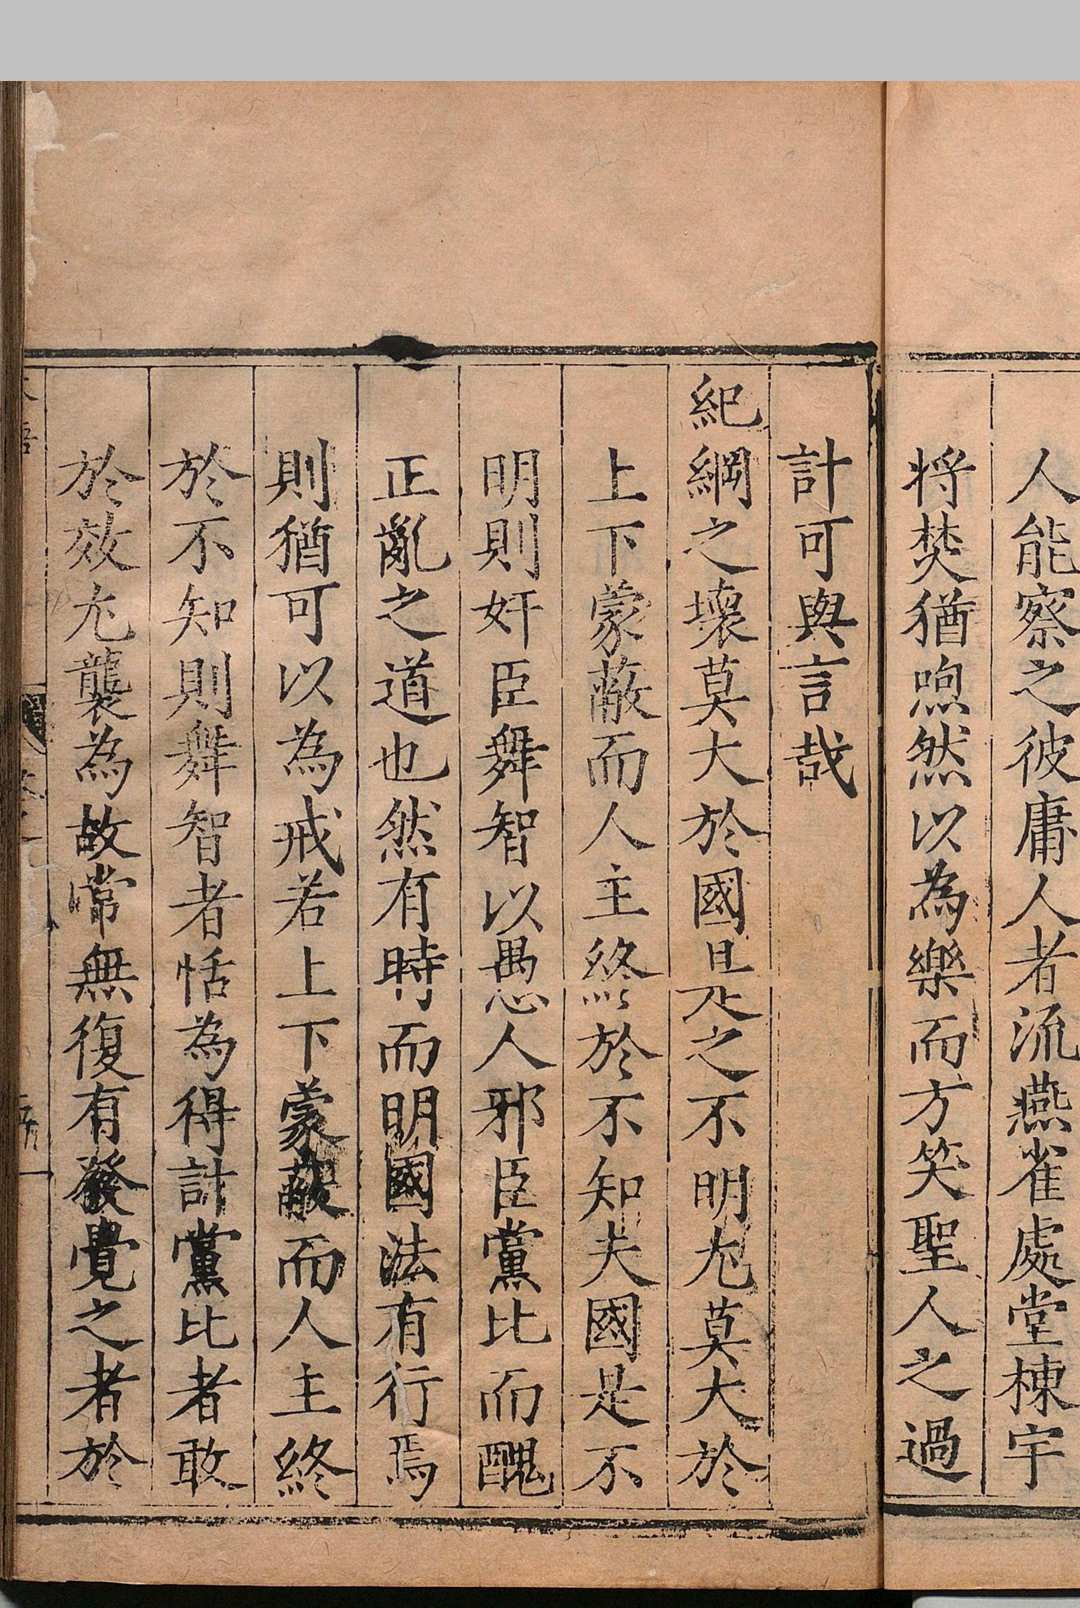 人能察之彼庸人者流燕雀處堂棟宇
将焚猶喣然以為樂而方笑聖人之過
計可與言哉
紀綱之壞莫大於國是之不明尤莫大於
上下蒙蔽而人主終於不知夫國是不
明則奸臣舞智以愚人邪臣黨比而醜
正亂之道也然有時而明國法有行焉
則猶可以為戒若上下蒙蔽而人主終
於不知則舞智者恬為得計黨比者敢
於效尤襲為故常無復有發覺之者於